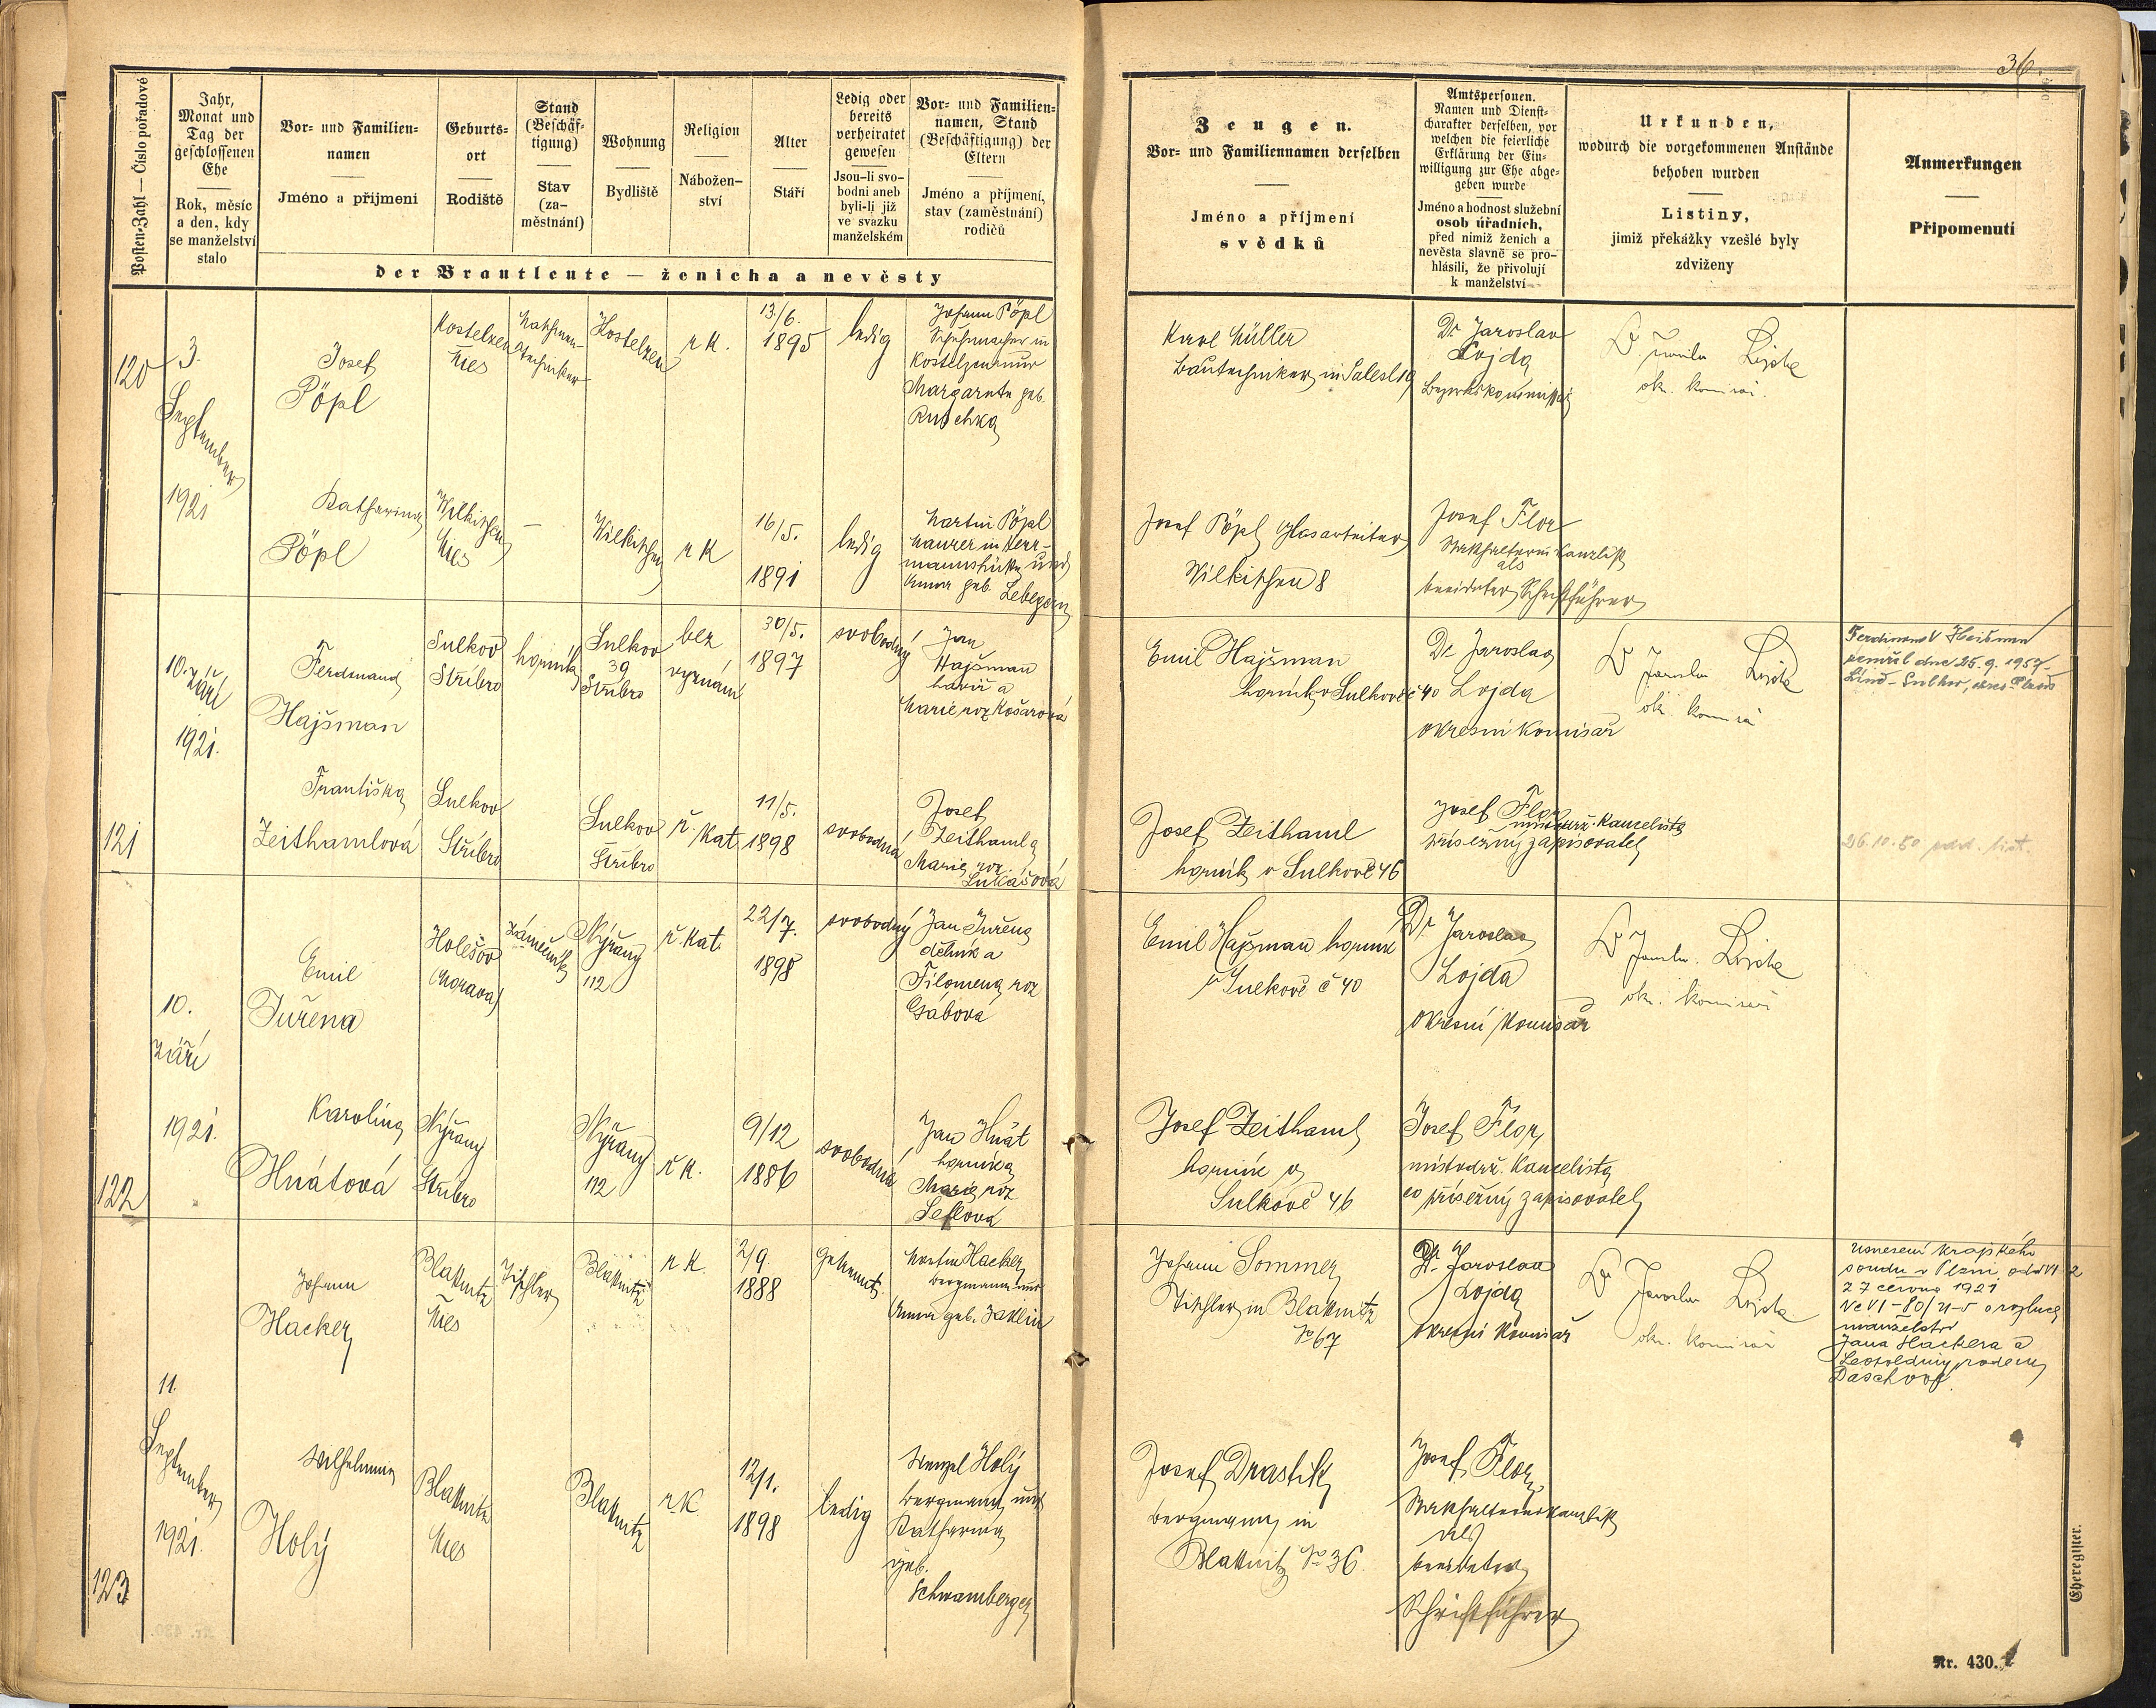 36.
Posten-Zahl — Číslo pořadové
Jahr,
Monat und
Tag der
geschlossenen
Ehe
Rok, měsíc
a den, kdy
se manželství
stalo
Vor- und Familien-
namen
Jméno a přijmení
Geburts-
ort
Rodiště
Stand
(Beschäf-
tigung)
Stav
(za-
městnání)
Wohnung
Bydliště
Religion
Nábožen-
ství
Alter
Stáří
Ledig oder
bereits
verheiratet
gewesen
Jsou-li svo-
bodni aneb
byli-li již
ve svazku
manželském
Vor- und Familien-
namen, Stand
(Beschäftigung) der
Eltern
Jméno a příjmení,
stav (zaměstnání)
rodičů
der Brautleute — ženicha a nevěsty
Zeugen.
Vor- und Familiennamen derselben
Jméno a příjmení
svědků
Amtspersonen.
Namen und Dienst-
charakter derselben, vor
welchen die feierliche
Erklärung der Ein-
willigung zur Ehe abge-
geben wurde
Jméno a hodnost služební
osob úřadních,
před nimiž ženich a
nevěsta slavně se pro-
hlásili, že přivolují
k manželství
Urkunden,
wodurch die vorgekommenen Anstände
behoben wurden
Listiny,
jimiž překážky vzešlé byly
zdviženy
Anmerkungen
Připomenutí
120
3.
September
1921
Josef
Pöpl
Kostelzen
Mies
techniker
Kostelzen
r K.
13/6.
1895
ledig
Johann Pöpl
Schuhmacher in
Kostelzen und
Margarete geb.
Ruschka
Karl Müller
Bautechniker in
Dr Jaroslav
Lojda
Bezirkskommissär
Dr Jaroslav Lojda
ok. komisař
Katharina
Pöpl
Wilkischen
Mies
—
Wilkischen
r K
16/5.
1891
ledig
Martin Pöpl
Maurer in Herr-
mannshütte und
Anna geb.
Josef Pöpl Glasarbeiter
Wilkischen 8
Josef Flor
Statthaltereikanzlist
als
beeideter Schriftführer
121
10. září
1921.
Ferdinand
Hajšman
Sulkov
Stříbro
horník
Sulkov
39
Stříbro
bez
vyznání
30/5.
1897
svobodný
Jan
Hajšman
havíř a
Marie roz Košarová
Emil Hajšman
horník v Sulkově č 40
Dr Jaroslav
Lojda
okresní komisař
Dr Jaroslav Lojda
ok. komisař
Ferdinand Heišman
zemřel dne 25.9.1957
Líně-Sulkov, okres Plzeň
Františka
Zeithamlová
Sulkov
Stříbro
Sulkov
Stříbro
ř. kat
11/5.
1898
svobodná
Josef
Zeithaml a
Marie roz.
Lukášová
Josef Zeithaml
horník v Sulkově 46
Josef Flor
místodrž. kancelista
přísežný zapisovatel
26.10.50
122
10.
září
1921.
Emil
Juřena
Holešov
(Morava)
zámečník
Nýřany
112
ř. kat.
22/7.
1898
svobodný
Jan Juřena
dělník a
Filomena roz
Gábová
Emil Hajšman horník
v Sulkově č 40
Dr. Jaroslav
Lojda
okresní komisař
Dr Jaroslav Lojda
ok. komisař
Karolina
Hnátová
Nýřany
Stříbro
Nýřany
112
ř K.
9/12
1886
svobodná
Jan Hnát
horník a
Marie roz
Josef Zeithaml
horník v
Sulkově 46
Josef Flor,
místodrž. kancelista
co přísežný zapisovatel
123
11.
September
1921.
Johann
Hacker
Blattnitz
Mies
Tischler
Blattnitz
r K.
2/9.
1888
getrennt.
Martin Hacker
Bergmann und
Anna geb.
Johann Sommer
Tischler in Blattnitz
No 67
Dr. Jaroslav
Lojda
okresní komisař
Dr Jaroslav Lojda
ok. komisař
Usnesení krajského
soudu v Plzni odd VI
27 června 1921
o rozluce
manželství
Jana Hackera a
Leopoldiny rodem
Wilhelmine
Holý
Blattnitz
Mies
Blattnitz
r K
12/1.
1898
ledig
Wenzel Holý
Bergmann und
Katharina
geb.
Schwamberger
Josef Drastik
Bergmann in
Blattnitz No 36
Josef Flor,
Statthaltereikanzlist
als
beeideter
Schriftführer
Eheregister.
Nr. 430.